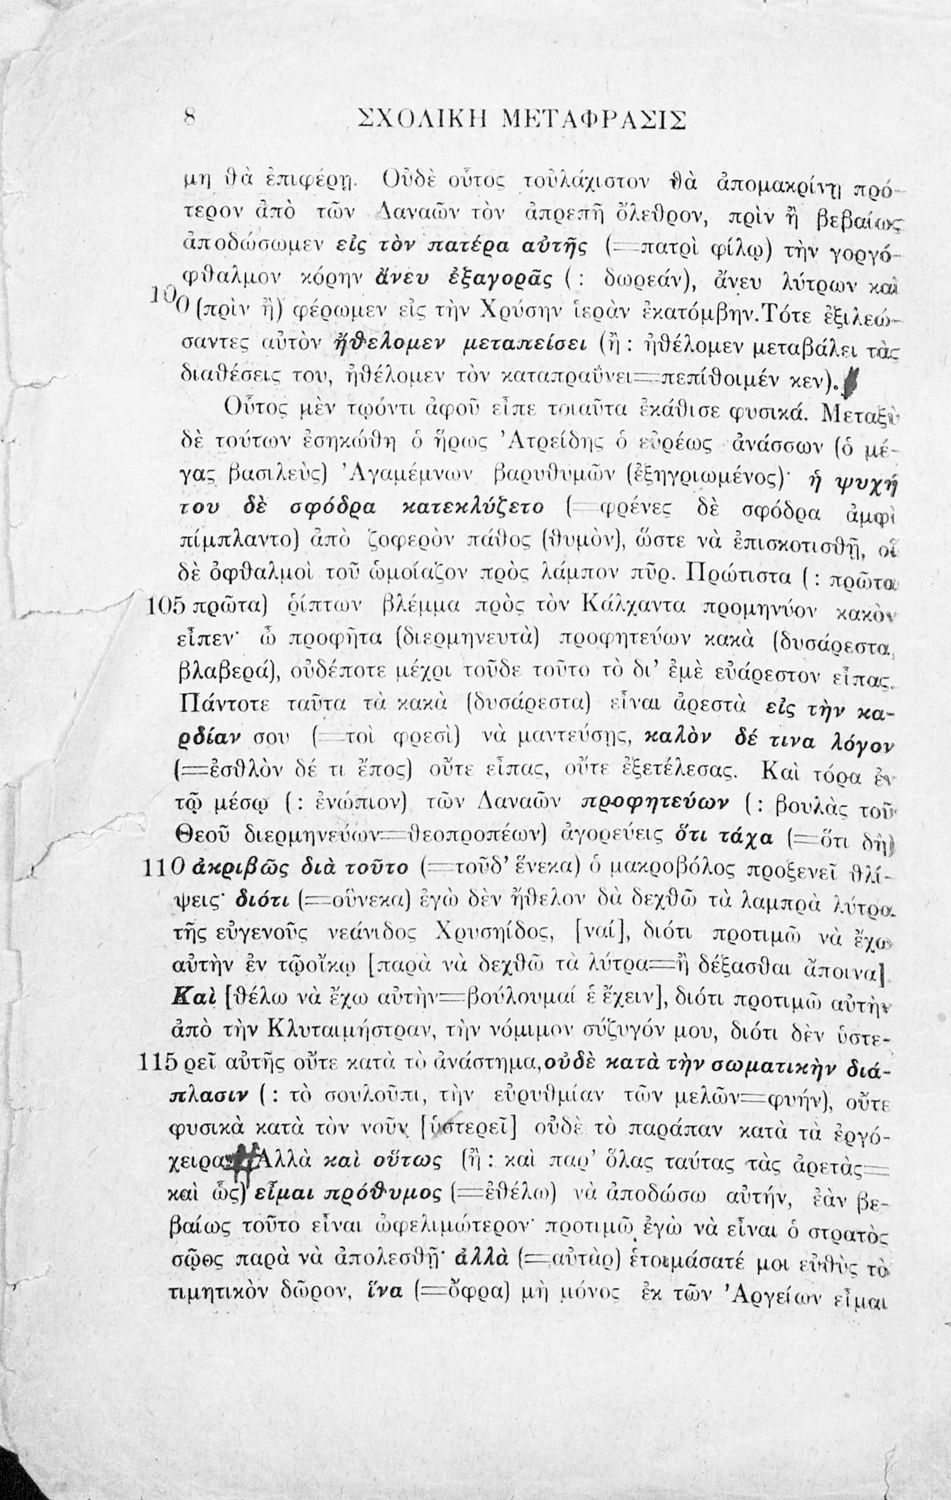 8 ΣΧΟΛΙΚΗ ΜΕΤΑΦΡΑΣΙΣ
μη θὰ ἐπιφέρῃ. Οὐδὲ οὗτος τοὐλάχιστον θὰ ἀπομακρίνῃ πρό-
τερον ἀπὸ τῶν Δαναῶν τὸν ἀπρεπῆ ὄλεθρον, πρὶν ἢ βεβαίως
ἀποδώσωμεν εἰς τὸν πατέρα αὐτῆς (=πατρὶ φίλῳ) τὴν γοργό-
φθαλμον κόρην ἄνευ ἐξαγορᾶς (: δωρεάν), ἄνευ λύτρων καὶ
100 (πρὶν ἢ) φέρωμεν εἰς τὴν Χρύσην ἱερὰν ἑκατόμβην. Τότε ἐξιλεώ-
σαντες αὐτὸν ἠθέλομεν μεταπείσει (ἢ : ἠθέλομεν μεταβάλει τὰς
διαθέσεις του, ἠθέλομεν τὸν καταπραΰνει=πεπίθοιμέν κεν).
Οὗτος μὲν τῳόντι ἀφοῦ εἶπε τοιαῦτα ἐκάθισε φυσικά. Μεταξὺ
δὲ τούτων ἐσηκώθη ὁ ἥρως Ἀτρείδης ὁ εὐρέως ἀνάσσων (ὁ μέ-
γας βασιλεὺς) Ἀγαμέμνων βαρυθυμῶν (ἐξηγριωμένος)· ἡ ψυχή
του δὲ σφόδρα κατεκλύζετο (=φρένες δὲ σφόδρα ἀμφὶ
πίμπλαντο) ἀπὸ ζοφερὸν πάθος (θυμὸν), ὥστε νὰ ἐπισκοτισθῇ, οἱ
δὲ ὀφθαλμοὶ τοῦ ὡμοίαζον πρὸς λάμπον πῦρ. Πρώτιστα (: πρῶτα
105 πρῶτα) ῥίπτων βλέμμα πρὸς τὸν Κάλχαντα προμηνύον κακὸν
εἶπεν· ὦ προφῆτα (διερμηνευτὰ) προφητεύων κακὰ (δυσάρεστα,
βλαβερά), οὐδέποτε μέχρι τοῦδε τοῦτο τὸ δι' ἐμὲ εὐάρεστον εἶπας.
Πάντοτε ταῦτα τὰ κακὰ (δυσάρεστα) εἶναι ἀρεστὰ εἰς τὴν κα-
ρδίαν σου (=τοὶ φρεσὶ) νὰ μαντεύσῃς, καλὸν δέ τινα λόγον
(=ἐσθλὸν δέ τι ἔπος) οὔτε εἶπας, οὔτε ἐξετέλεσας. Καὶ τόρα ἐν
τῷ μέσῳ (: ἐνώπιον) τῶν Δαναῶν προφητεύων (: βουλὰς τοῦ
Θεοῦ διερμηνεύων=θεοπροπέων) ἀγορεύεις ὅτι τάχα (=ὅτι δὴ)
110 ἀκριβῶς διὰ τοῦτο (=τοῦδ' ἕνεκα) ὁ μακροβόλος προξενεῖ θλί-
ψεις· διότι (=οὕνεκα) ἐγὼ δὲν ἤθελον δὰ δεχθῶ τὰ λαμπρὰ λύτρα
τῆς εὐγενοῦς νεάνιδος Χρυσηίδος, [ναί], διότι προτιμῶ νὰ ἔχω
αὐτὴν ἐν τῷ οἴκῳ [παρὰ νὰ δεχθῶ τὰ λύτρα=ἢ δέξασθαι ἄποινα].
Καὶ [θέλω νὰ ἔχω αὐτὴν=βούλουμαί ἑ ἔχειν], διότι προτιμῶ αὐτὴν
ἀπὸ τὴν Κλυταιμήστραν, τὴν νόμιμον σύζυγόν μου, διότι δὲν ὑστε-
115 ρεῖ αὐτῆς οὔτε κατὰ τὸ ἀνάστημα, οὐδὲ κατὰ τὴν σωματικὴν διά-
πλασιν (: τὸ σουλοῦπι, τὴν εὐρυθμίαν τῶν μελῶν=φυήν), οὔτε
φυσικὰ κατὰ τὸν νοῦν [ὑστερεῖ] οὐδὲ τὸ παράπαν κατὰ τὰ ἐργό-
χειρα. Ἀλλὰ καὶ οὕτως (ἢ : καὶ παρ' ὅλας ταύτας τὰς ἀρετὰς=
καὶ ὣς) εἶμαι πρόθυμος (=ἐθέλω) νὰ ἀποδώσω αὐτήν, ἐὰν βε-
βαίως τοῦτο εἶναι ὠφελιμώτερον· προτιμῶ ἐγὼ νὰ εἶναι ὁ στρατὸς
σῷος παρὰ νὰ ἀπολεσθῇ· ἀλλὰ (=αὐτὰρ) ἑτοιμάσατέ μοι εὐθὺς τὸ
τιμητικὸν δῶρον, ἵνα (=ὄφρα) μὴ μόνος ἐκ τῶν Ἀργείων εἶμαι